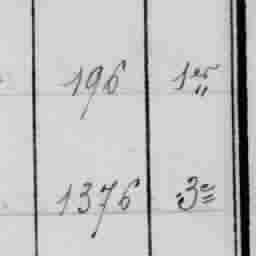 196 1er
1376 3e